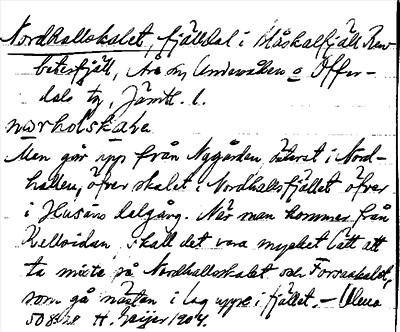 Nordhallskalet, fjälldal i Blåskalfjäll Ren-
betesfjäll, Åre sn, Undersåkers o Offer-
dals tg, Jämtl. l.
nɯrhɒlskalɛ
Man går upp från Nygården, österut i Nord-
hallen, öfver skalet i Nordhallsfjället öfver
i Husåns dalgång. När man kommer från
Kallsidan, skall det vara mycket lätt att
ta miste på Nordhallsskalet och Forsaskalet,
som gå nästan i lag uppe i fjället. – Ulma
50 H. Geijer 1904.